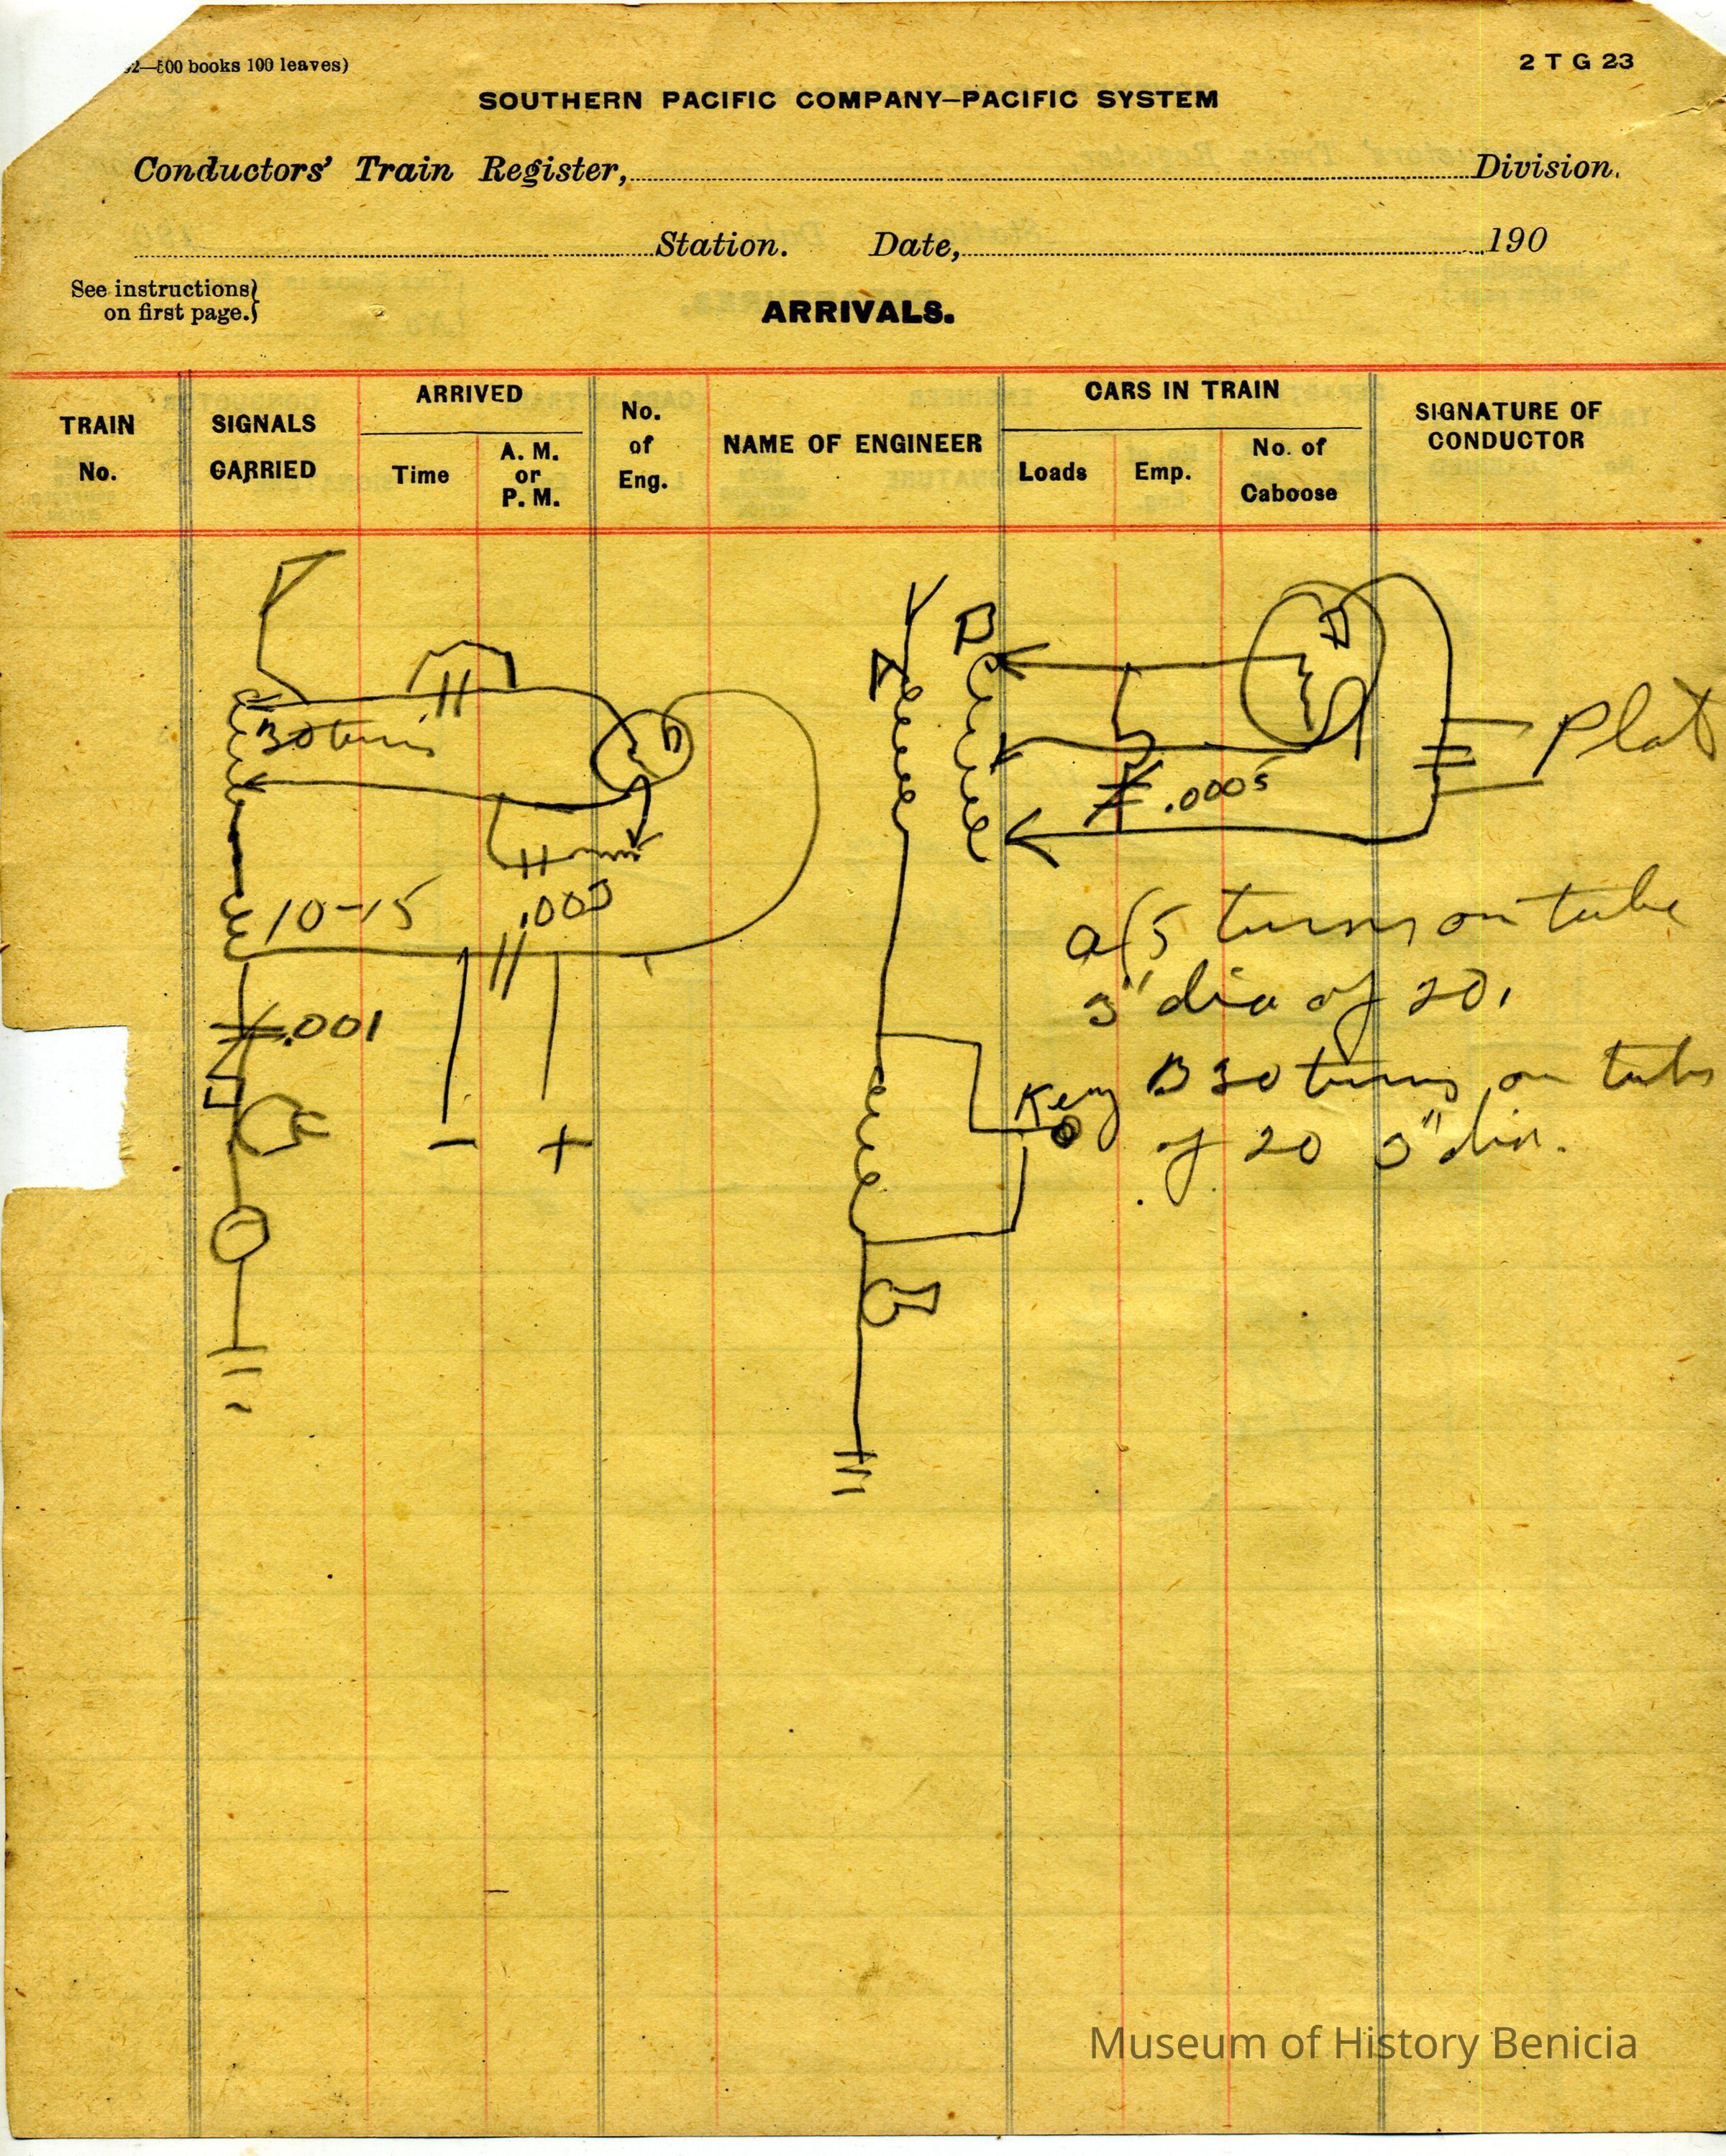 2—500 books 100 leaves)
2 T G 23
SOUTHERN PACIFIC COMPANY—PACIFIC SYSTEM
Conductors' Train Register, Division.
Station. Date, 190
See instructions
on first page.
ARRIVALS.
TRAIN No.
SIGNALS CARRIED
ARRIVED
Time
A. M. or P. M.
No. of Eng.
NAME OF ENGINEER
CARS IN TRAIN
Loads
Emp.
No. of Caboose
SIGNATURE OF CONDUCTOR
30 turns
10-15
.001
− +
A
B
.0005
Plat
turns on tube
3" dia of 20.
Key
B 30 turns on tube
of 20 3" dia.
Museum of History Benicia